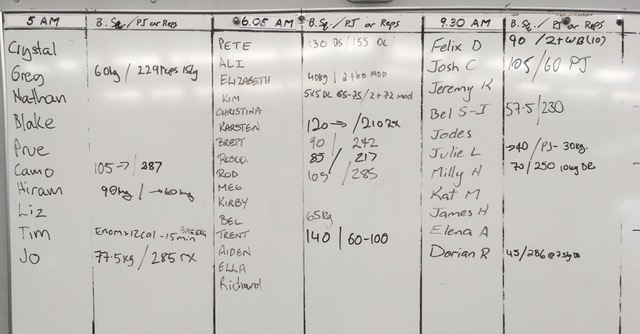 5 AM B. Sq. / PJ or Reps 6.05 AM B. Sq. / PJ or Reps 9.30 AM B. Sq. / PJ or Reps
Crystal PETE 130 BS / 155 DL Felix D 90 / 2+WB(10)
Greg 60kg / 229 Reps 15kg ALI Josh C 105/60 PJ
ELIZABETH 40kg / 2+60 MOD Jeremy K
Nathan KIM 5x5 DL 65-75 / 2+72 mod Bel S-J 57.5/230
CHRISTINA
Blake KARSTEN 120 → / 210 RX Jodes
Prue BRETT 90 / 242 Julie L →40 / PJ- 30kg.
Camo 105 → / 287 ROSCO. 85 / 217 Milly H 70 / 250 10kg DB
Hiram 90kg / →60kg ROD 105 / 285 Kat M
MEG
Liz KIRBY James H
BEL 65kg
Tim 15 min TRENT 140 / 60-100 Elena A
Jo 77.5kg / 285 RX AIDEN Dorian R 45 / 286 @
ELLA
Richard